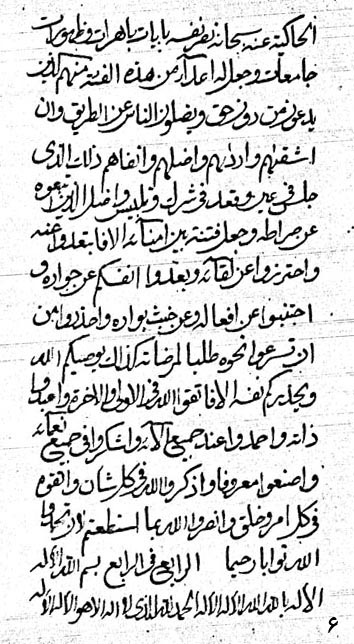 الحاكية عنه سبحانه نصر نفسه بايات باهرات و ظهورات
جامعات وجعل له اعداء من هذه الفئة منهم الذين
يدعون من دون حق ويضلون الناس عن الطريق وان
اشقيهم واردلهم واضلهم وانفاهم ذلك الذى
جلس فى عين وقعد فى شرك وتلبيس واضل الذين اتبعوه
عن صراطه وجعل فتنة بين امنائه الا فابتعدوا عنه
واحترزوا عن لقائه وبعدوا انفسكم عن جواره و
اجتنبوا عن افعاله وعن خبث بواده واحذروا من
ان تسرعوا نحوه طلبا لمرضاته كذلك يوصيكم الله
ويحذركم نفسه الا فاتقوا الله فى الاولى والاخرة واعبدوا
ذاته واحمدوا عند جميع آلائه واشكروا فى جميع نعمائه
واصنعوا معروفا واذكروا الله فى كل شان واتقوه
فى كل امر وخلق وانصروا الله بما استطعتم لان تجدوا
الله توابا رحيما الرابع فى الرابع بسم الله الاله
الاله بالله الله الاله الاله الحمد لله الذى لا اله الا هو الاله الاله
۶